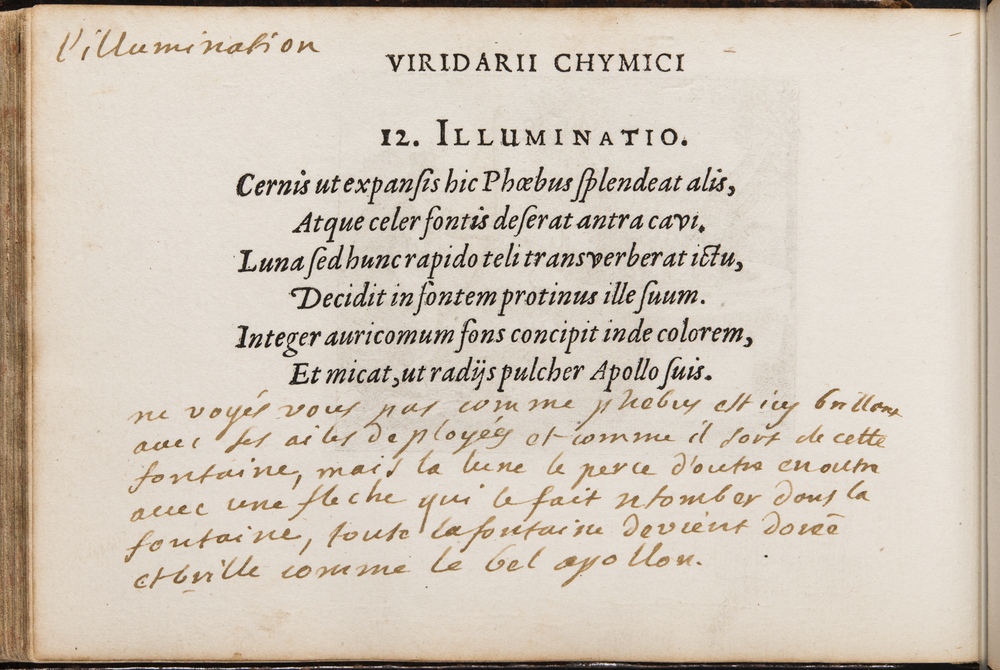 l'illumination
VIRIDARII CHYMICI
12. ILLUMINATIO.
Cernis ut expanſis hic Phœbus ſplendeat alis,
Atque celer fontis deſerat antra cavi.
Luna ſed hunc rapido teli transverberat ictu,
Decidit in fontem protinus ille ſuum.
Integer auricomum fons concipit inde colorem,
Et micat, ut radijs pulcher Apollo ſuis.
ne voyés vous pas comme phebus est icy brillant
avec ses ailes deployées et comme il sort de cette
fontaine, mais la lune le perce d'outre en outre
avec une fleche qui le fait retomber dans la
fontaine, toute la fontaine devient doreé
et brille comme le bel apollon.